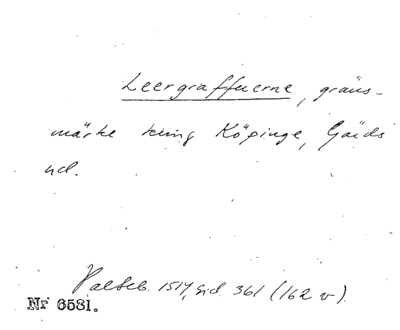 Leergraffuerne, gräns-
märke kring Köpinge, Gärds
hd.
Palteb. 1514, sid. 361 (162 v).
Nr 6581.